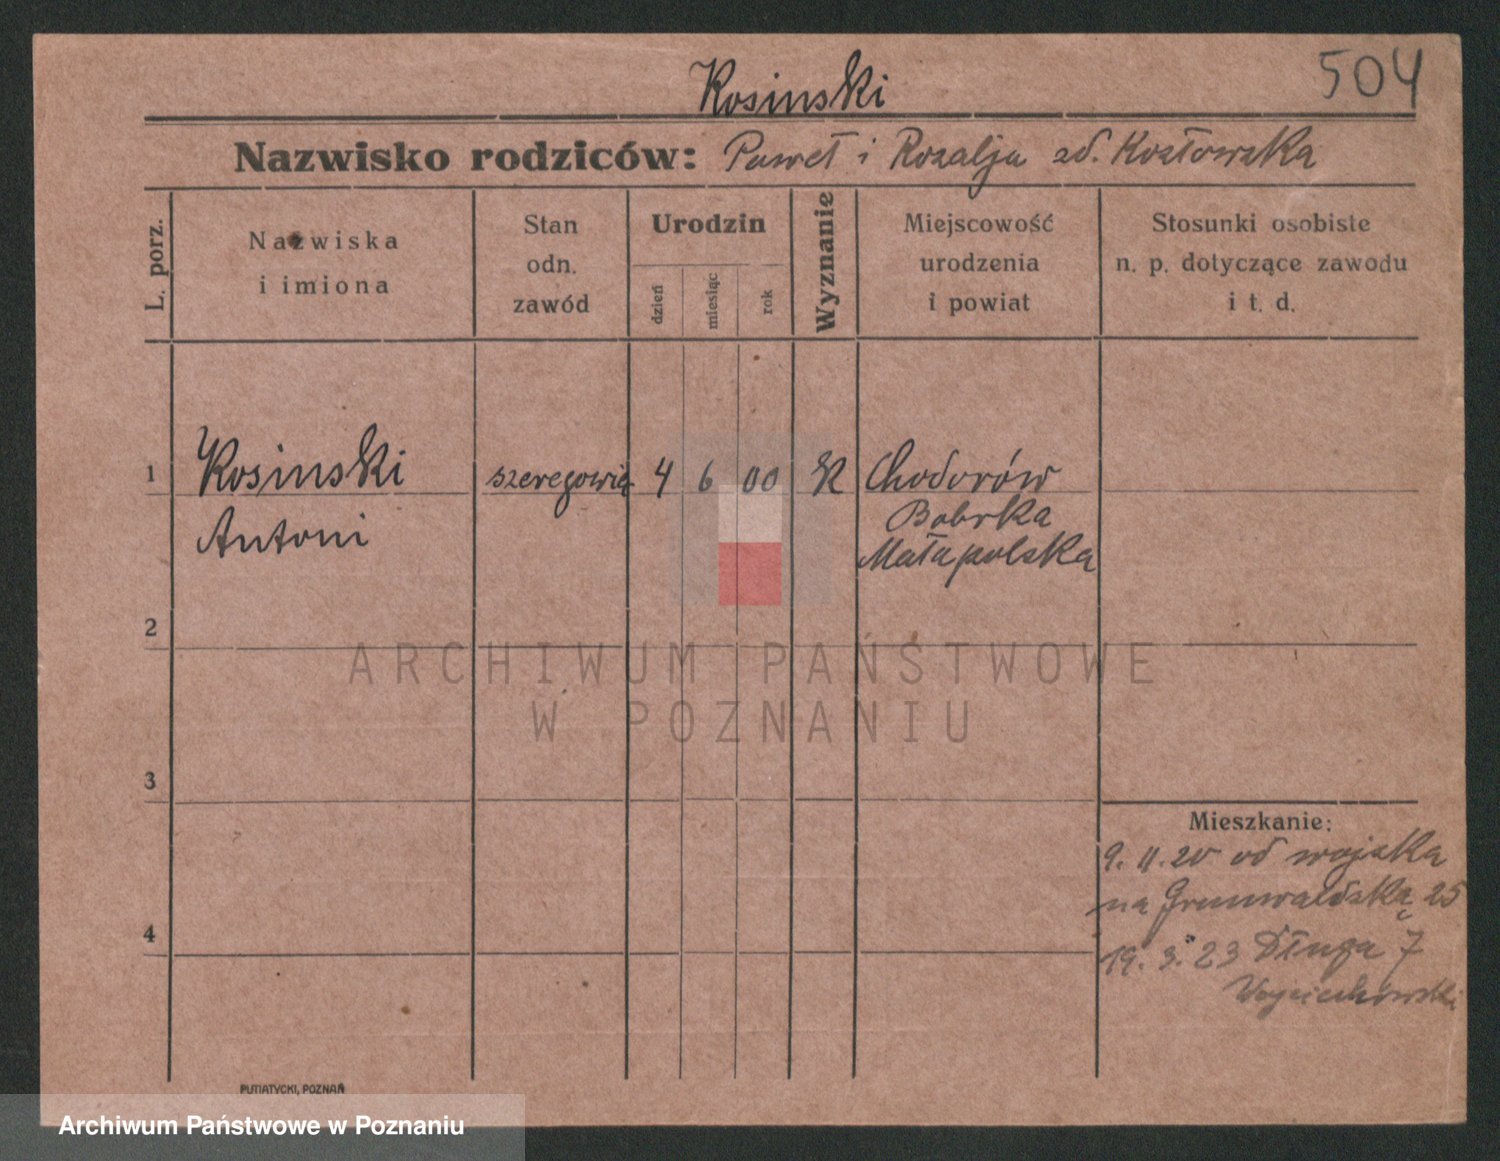 504
Kosinski
Nazwisko rodziców: Paweł i Rozalja zd. Kozłowska
L. porz.
Nazwiska
i imiona
Stan
odn.
zawód
Urodzin
dzień
miesiąc
rok
Wyznanie
Miejscowość
urodzenia
i powiat
Stosunki osobiste
n. p. dotyczące zawodu
i t. d.
1 Kosinski szeregowie 4 6 00 K Chodorów
Antoni Bobrka
Małapolska
2
3
4
Mieszkanie:
9. 11. 20 od wojska
na Grunwaldską 25
19. 3. 23 Długa 7
Wojciechowski
PUTIATYCKI, POZNAŃ
ARCHIWUM PAŃSTWOWE
W POZNANIU
Archiwum Państwowe w Poznaniu